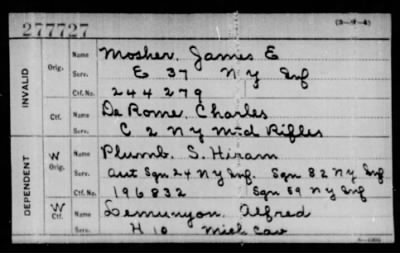 277727
(3-7-4)
INVALID
Orig. Name Mosher, James E
Serv. E 37 N Y Inf
Ctf. No. 244279
Ctf. Name De Rome, Charles
Serv. C 2 N Y Mtd Rifles
DEPENDENT
W Orig. Name Plumb, S. Hiram
Serv. Asst Sgn 24 N Y Inf. Sgn 82 N Y Inf
Ctf. No. 196832 Sgn 59 N Y Inf
W Ctf. Name Demunyon, Alfred
H 10 Mich Cav